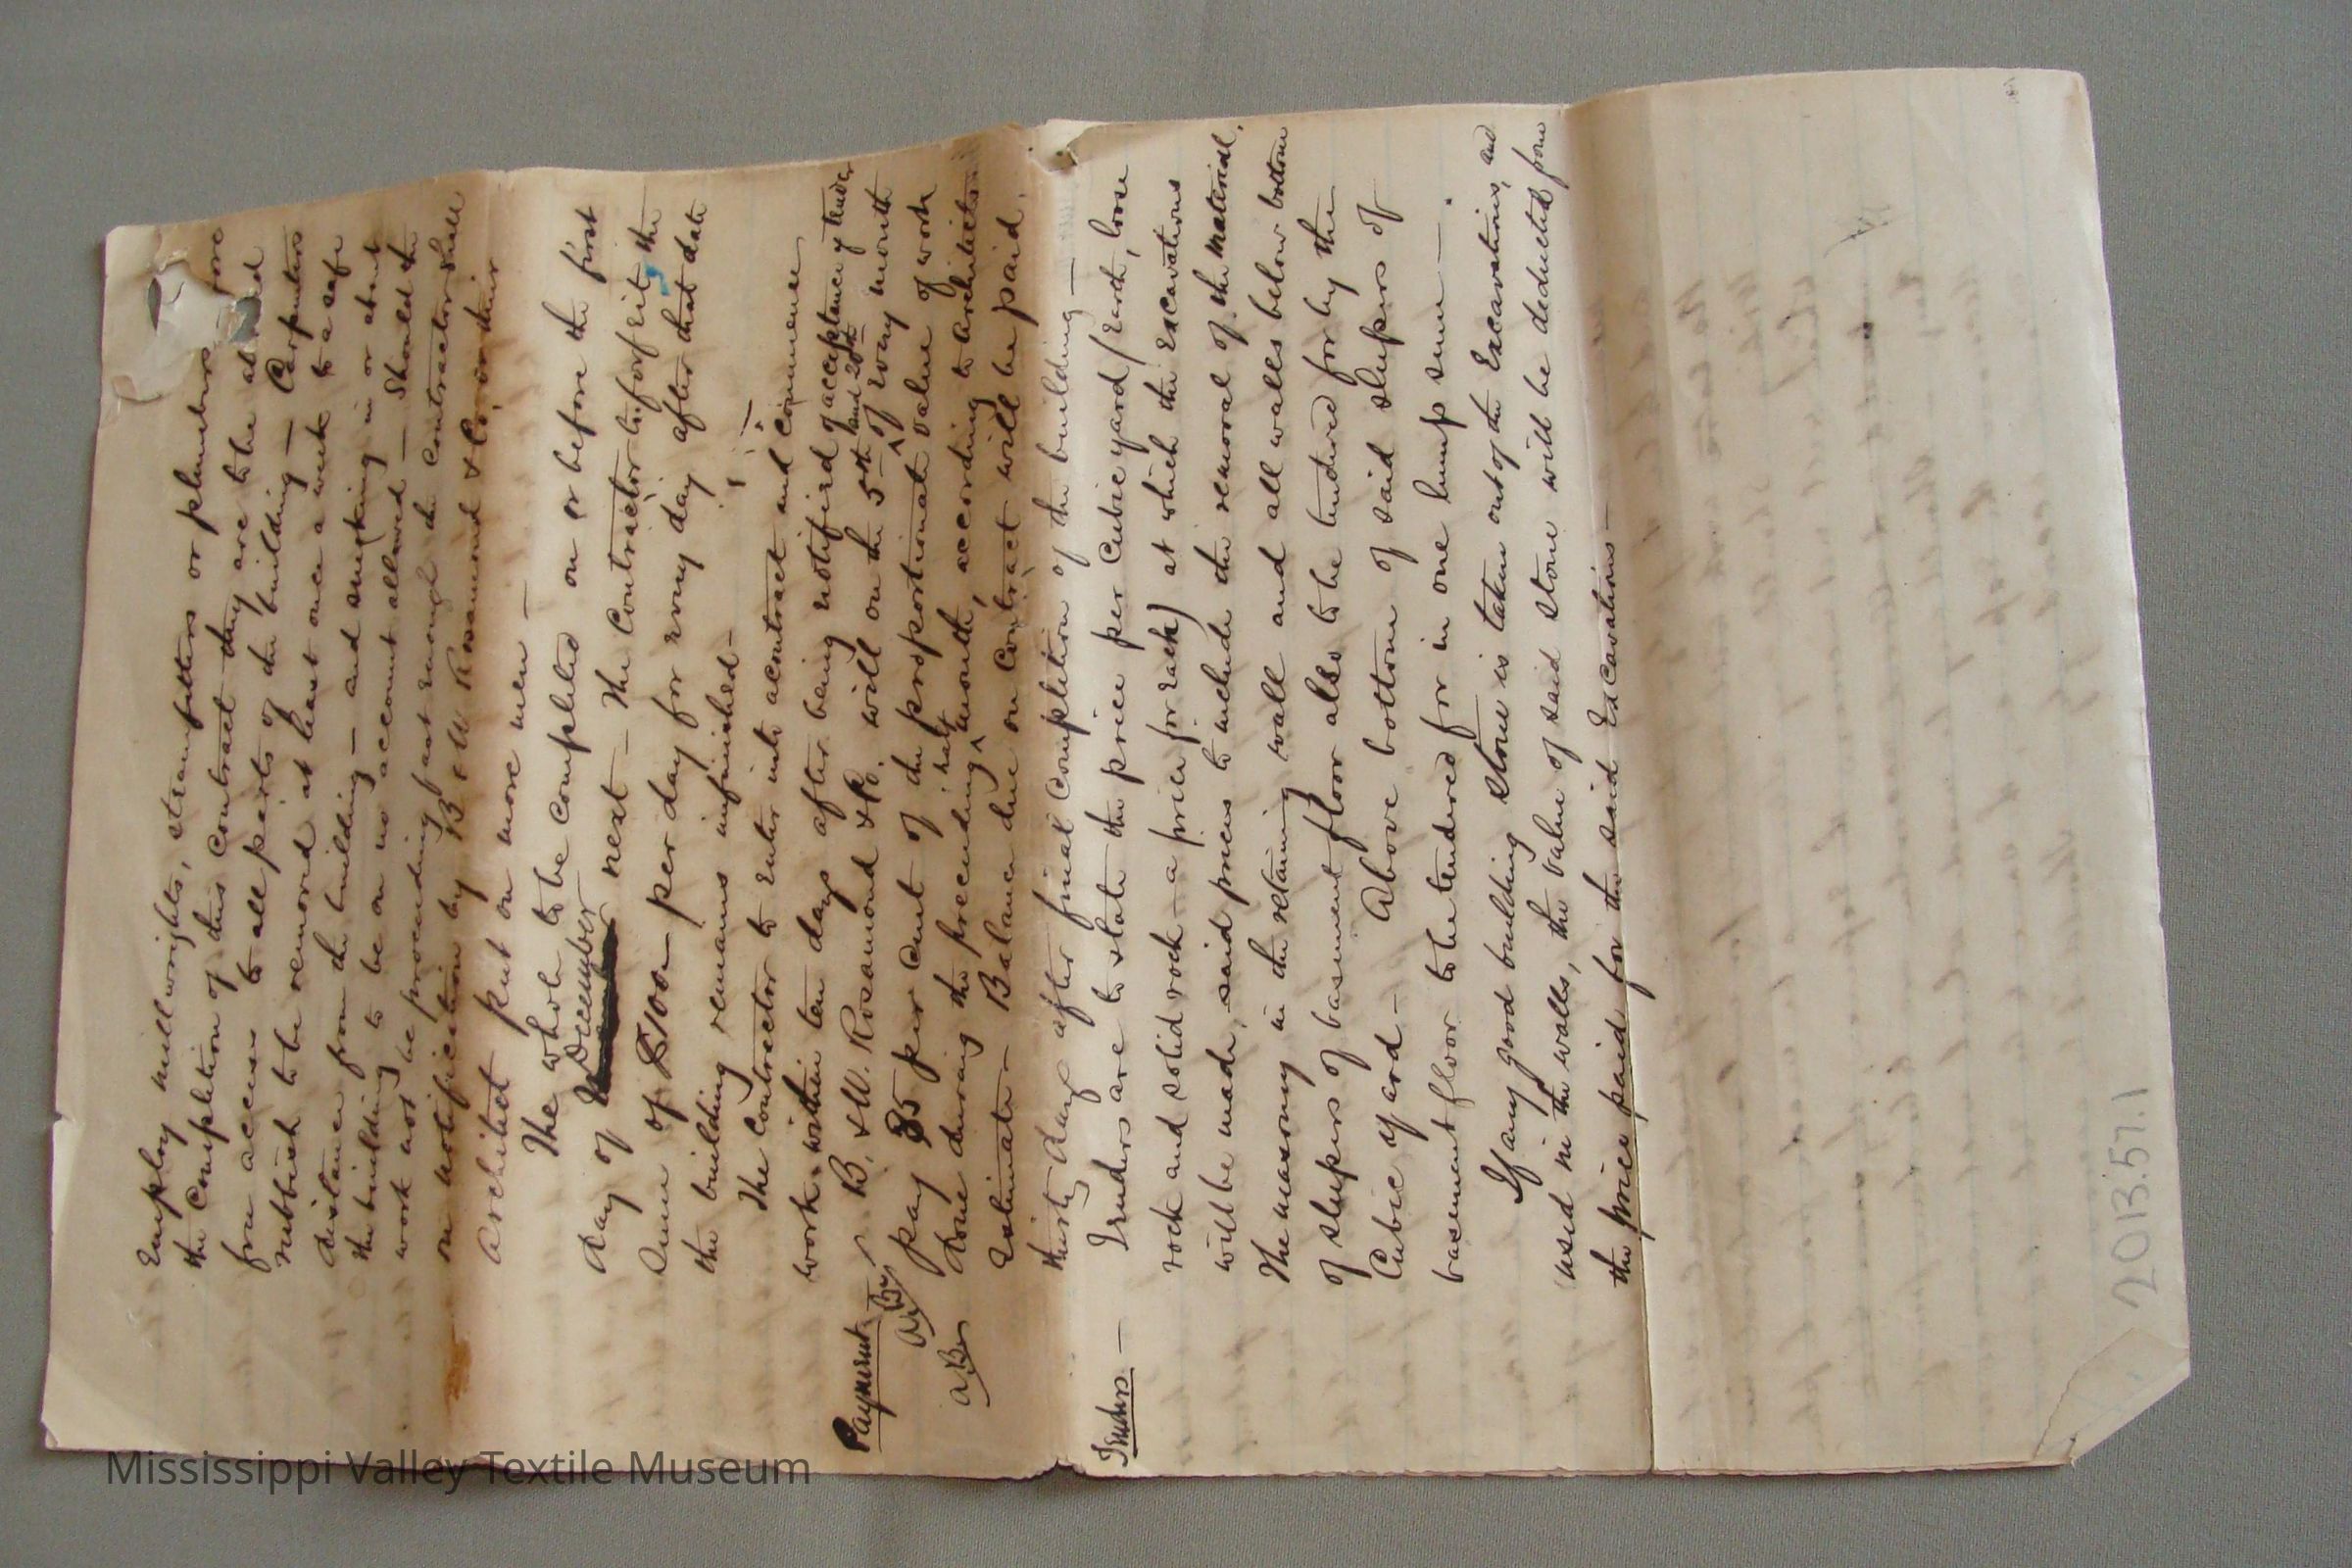 Employ millwrights, steamfitters or plumbers
the Completion of this Contract they are to be
free access to all parts of the building — Carpenters
rubbish to be removed at least once a week to a safe
distance from the building — and smoking in or about
the building to be on no account allowed — Should the
work not be proceeding fast enough the Contractor shall
on notification by B & W Rosamond & Co, or their
Architect put on more men —
The whole to be completed on or before the first
day of December next — The Contractor to forfeit the
Sum of $100— per day for every day after that date
the building remains unfinished—
The Contractor to enter into a contract and commence
work within ten days after being notified of acceptance of tender
Payment B. & W. Rosamond & Co. will on the 5th and 20th of every month
pay 85 per cent of the proportionate value of work
done during the preceeding half month, according to Architects
Estimate — Balance due on Contract will be paid
thirty days after final Completion of the building —
Tenders — Tenders are to state the price per Cubic yard (earth, loose
rock and solid rock — a price for each) at which the Excavations
will be made, said prices to include the removal of the material.
The masonry in the retaining wall and all walls below bottom
of sleepers of basement floor also to be tendered for by the
Cubic yard — Above bottom of said sleepers of
basement floor to be tendered for in one lump sum —
If any good building stone is taken out of the Excavations, and
used in the walls, the value of said stone will be deducted from
the price paid for the said Excavations —
2013.57.1
Mississippi Valley Textile Museum